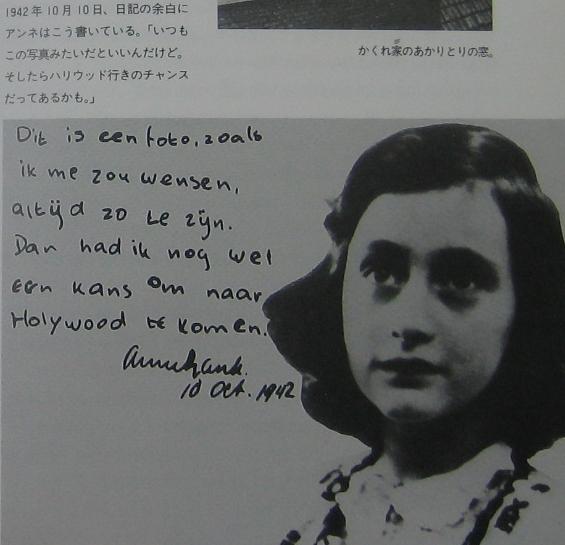 1942年10月10日、日記の余白に
アンネはこう書いている。「いつも
この写真みたいだといいんだけど。
そしたらハリウッド行きのチャンス
だってあるかも。」
かくれ家のあかりとりの窓。
Dit is een foto, zoals
ik me zou wensen,
altijd zo te zijn.
Dan had ik nog wel
een kans om naar
Holywood te komen.
Annefrank.
10 Oct. 1942